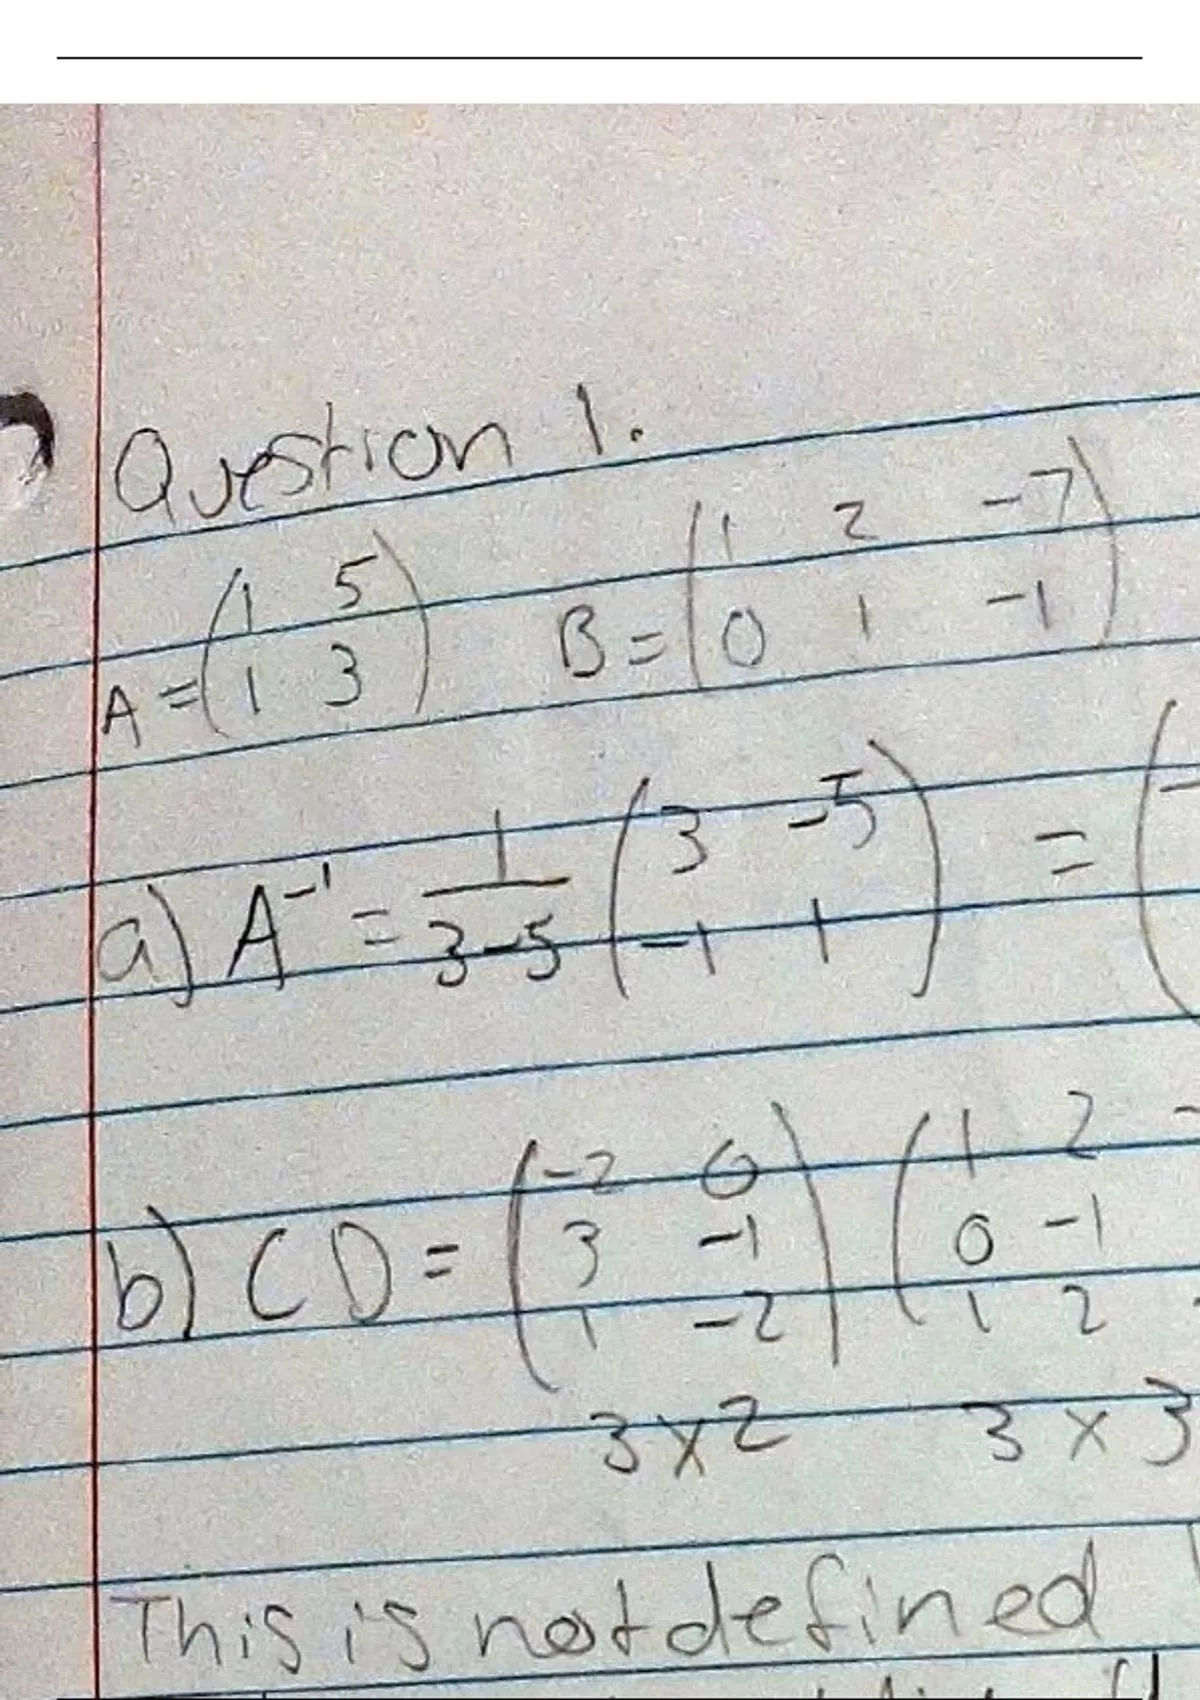 Question 1.
A = (1 5
1 3) B = (1 2 -7
0 1 -1)
a) A⁻¹ = 1/(3-5) (3 -5
-1 1) = (-
b) CD = (-2 0
3 -1
1 -2) (1 2 -
0 -1
1 2 -
3x2 3x3
This is not defined